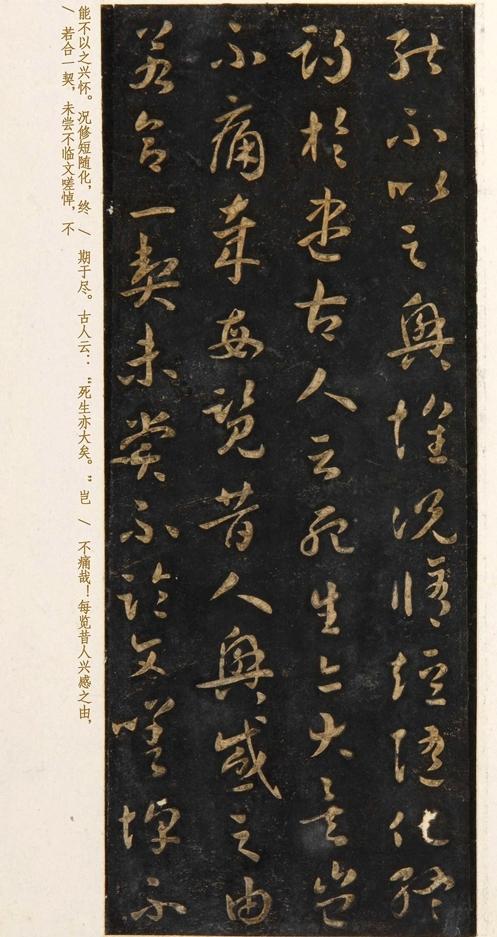 能不以之興懷況脩短隨化終
期於盡古人云死生亦大矣豈
不痛哉每覽昔人興感之由
若合一契未嘗不臨文嗟悼不
能不以之兴怀。况修短随化，终 / 期于尽。古人云：“死生亦大矣。”岂 / 不痛哉！每览昔人兴感之由，
/ 若合一契，未尝不临文嗟悼，不